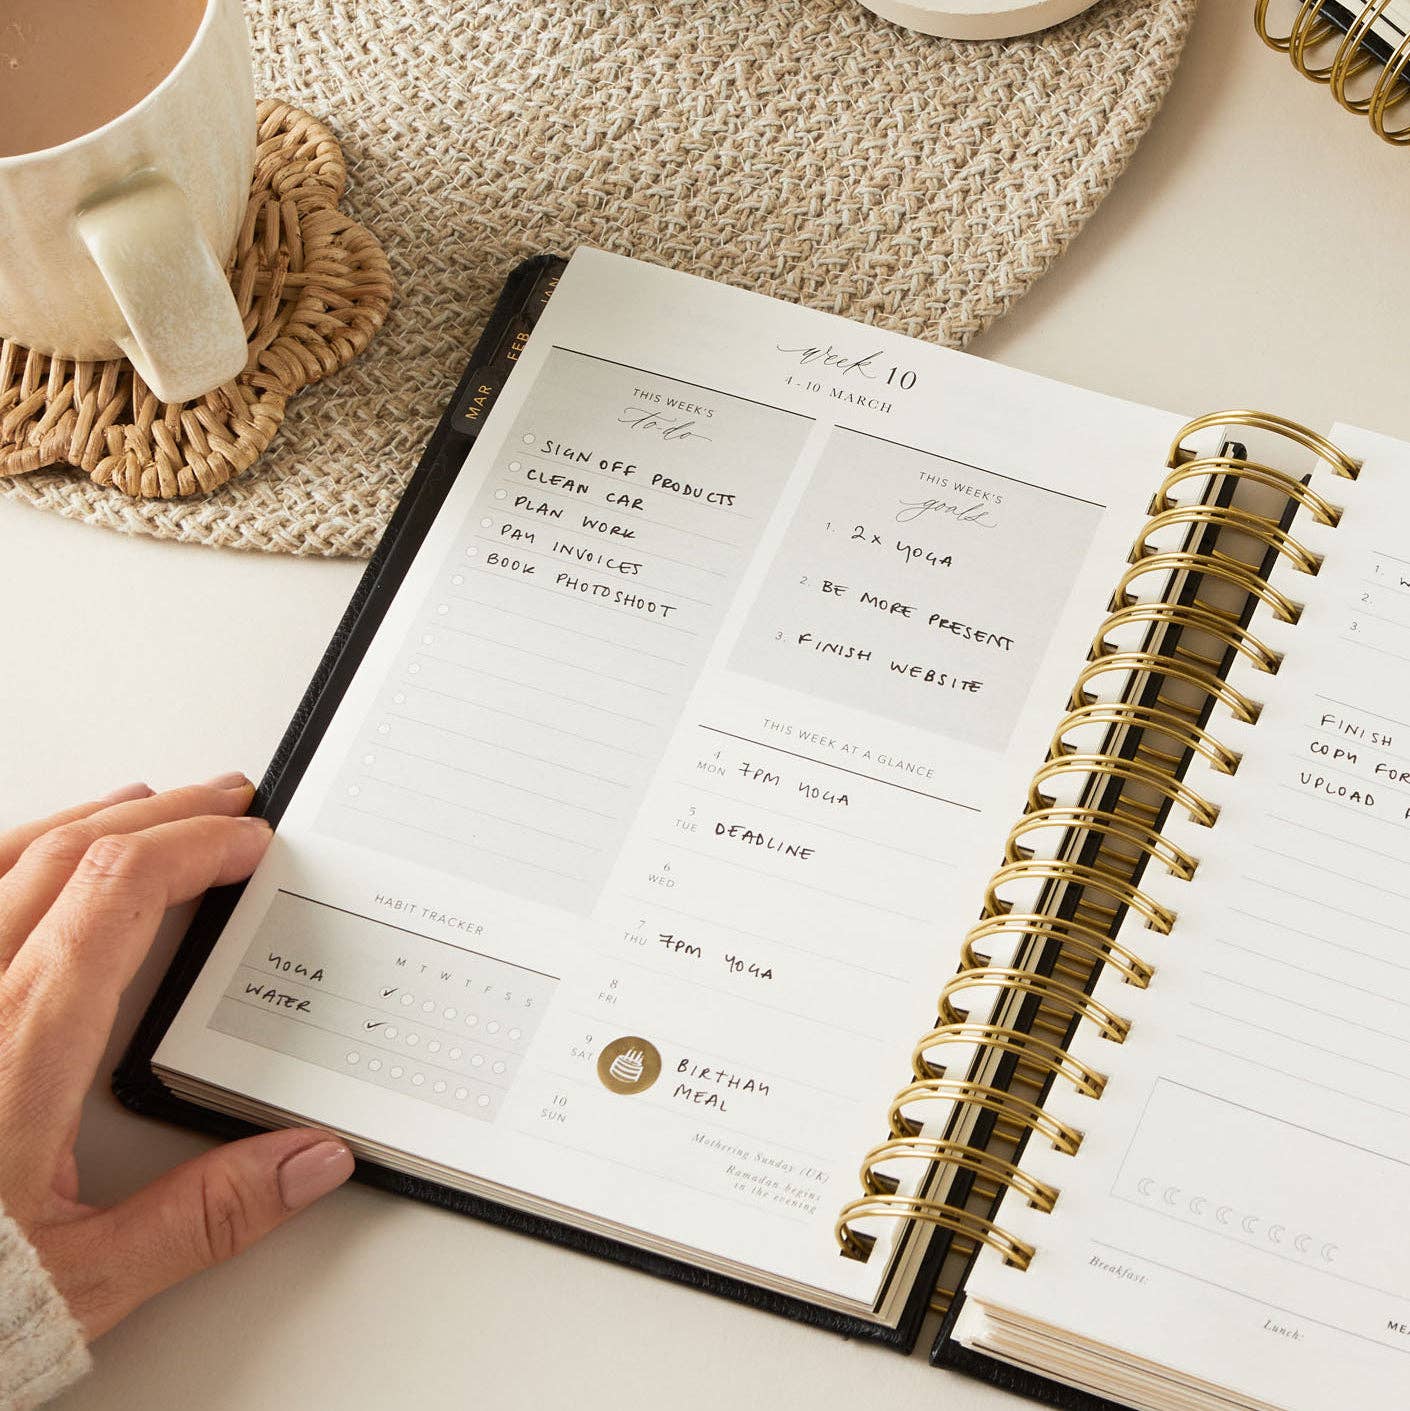 JAN
FEB
MAR
week 10
4 - 10 MARCH
THIS WEEK'S
to-do
SIGN OFF PRODUCTS
CLEAN CAR
PLAN WORK
PAY INVOICES
BOOK PHOTOSHOOT
THIS WEEK'S
goals
1. 2x YOGA
2. BE MORE PRESENT
3. FINISH WEBSITE
THIS WEEK AT A GLANCE
4
MON 7PM YOGA
5
TUE DEADLINE
6
WED
7
THU 7PM YOGA
8
FRI
9
SAT BIRTHAY
MEAL
10
SUN
Mothering Sunday (UK)
Ramadan begins
in the evening
HABIT TRACKER
M T W T F S S
YOGA ✓
WATER ✓
1.
2.
3.
FINISH
COPY FOR
UPLOAD
Breakfast:
Lunch: